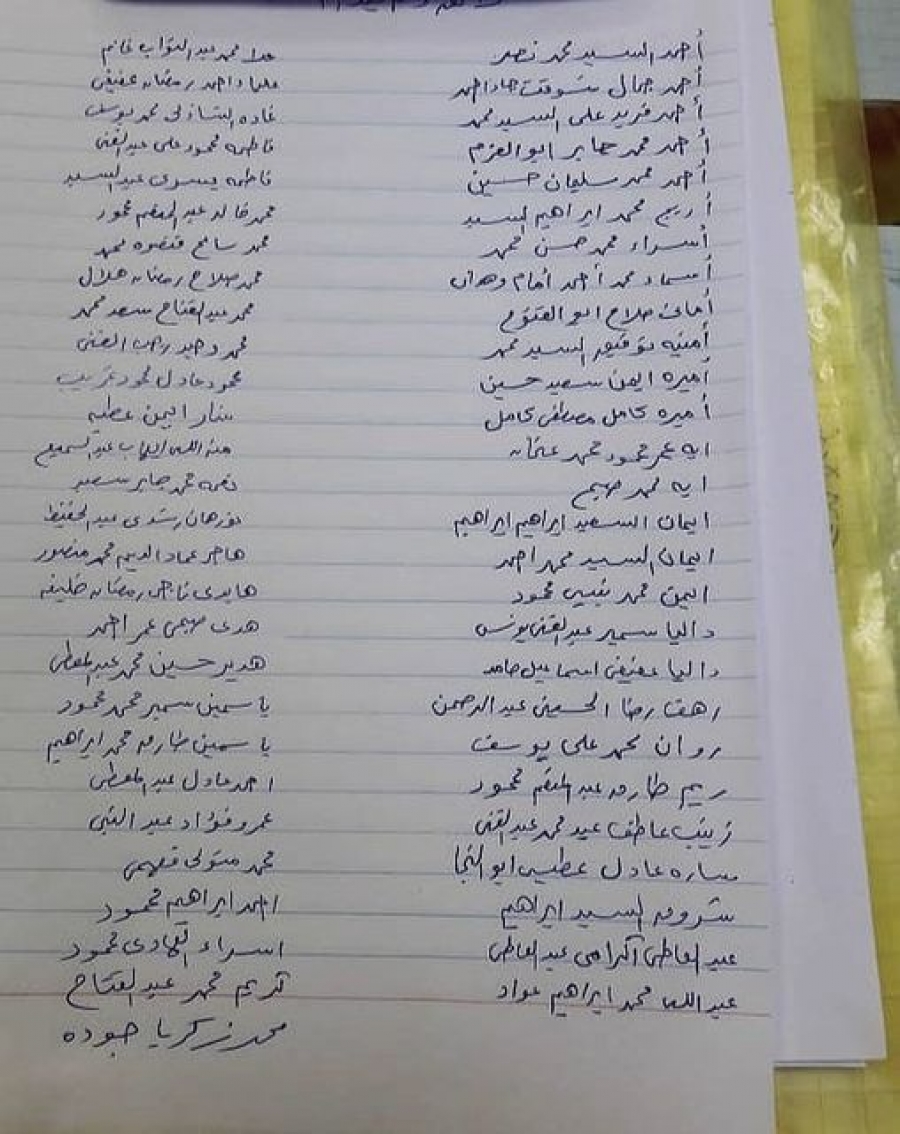 أحمد السيد محمد نصر
أحمد جمال شوقت جاد احمد
أحمد فريد على السيد محمد
أحمد محمد جابر ابو العزم
أحمد محمد سليمان حسين
أريج محمد ابراهيم السيد
أسراء محمد حسن محمد
أسماء محمد أحمد أمام وهدان
أمانى صلاح ابو الفتوح
أمنيه توفيق السيد محمد
أميره ايمن سعيد حسين
أميره كامل مصطفى كامل
ايه عمر محمود محمد عثمان
ايه محمد صبحى
ايمان السعيد ابراهيم ابراهيم
ايمان السيد محمد احمد
ايمن محمد محمود
داليا سمير عبد الغنى يونس
داليا عفيفى اسماعيل حامد
رهف رضا الحسينى عبد الرحمن
روان محمد على يوسف
ريم طارق عبد المنعم محمود
زينب عاطف عيد محمد عبد الغنى
ساره عادل عطيه ابو النجا
شروق السيد ابراهيم
عبد العاطى اكرامى عبد العاطى
عبد الله محمد ابراهيم عواد
علا محمد عبد التواب غانم
علياء احمد رمضان عفيفى
غاده الشاذلى محمد يوسف
فاطمه محمود على عبد الغنى
فاطمه يسرى عبد السيد
محمد خالد عبد المنعم محمود
محمد سامح محمد
محمد صلاح رمضان هلال
محمد عبد الفتاح سعد محمد
محمد وحيد رجب
محمود عادل محمود غريب
منار ايمن عطيه
منة الله ايهاب عبد السميع
نعمه محمد جابر سعيد
نورهان رشدى عبد الحفيظ
هاجر عماد الديم محمد منصور
هايدى ناجى رمضان خليفه
هدى صبحى عمر احمد
هدير حسين محمد عبد المعطى
ياسمين سمير محمد محمود
ياسمين طارق محمد ابراهيم
احمد عادل عبد المعطى
عمرو فؤاد عبد النبى
محمد متولى فهمى
احمد ابراهيم محمود
اسراء الهادى محمود
كريم محمد عبد الفتاح
محمد زكريا جوده